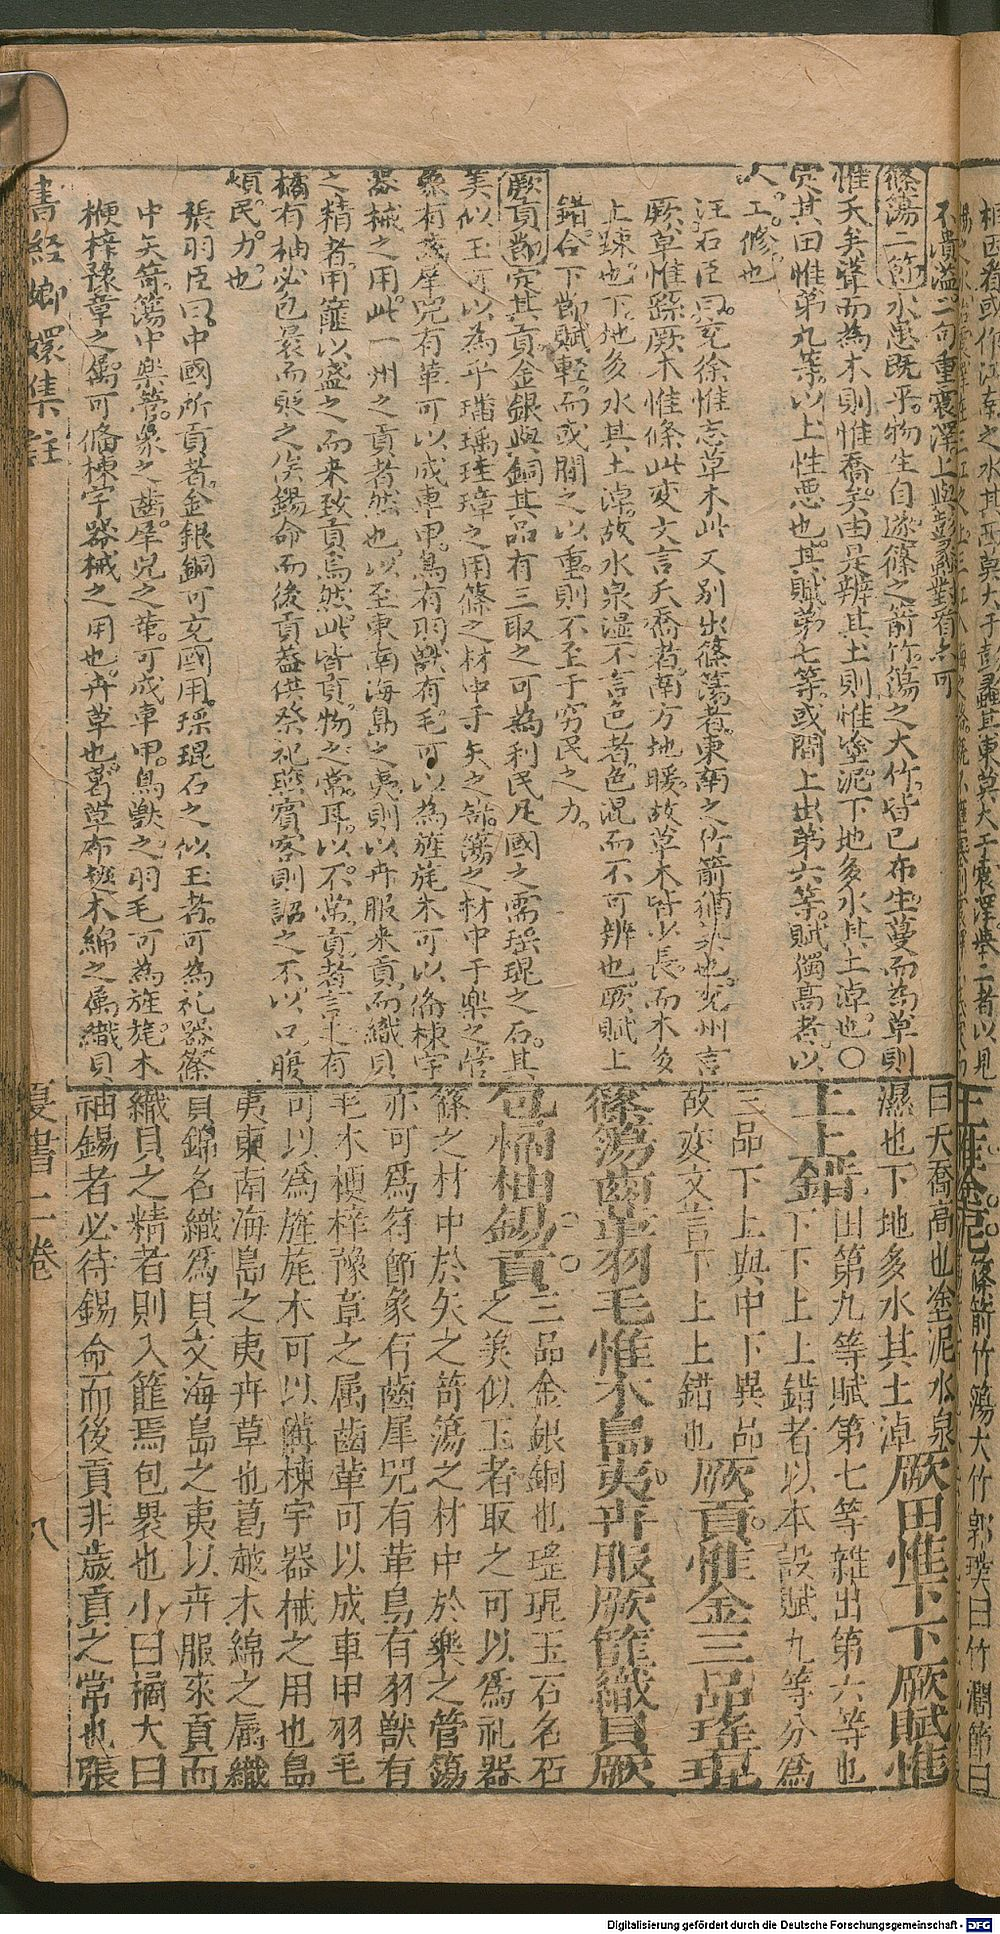 不潰溢二句重震澤上與彭蠡對看亦可
篠蕩二節水患既平物生自遂篠之箭竹簜之大竹皆已布生蔓而為草則
惟夭矣聳而為木則惟喬矣由是辨其土則惟塗泥下地多水其土淖也〇
定其田惟第九等以上性惡也其賦第七等或間上出第六等賦獨高者以
人工修也
汪石臣曰兗徐惟志草木此又別出篠簜者東南之竹箭猶美也兗州言
厥草惟繇厥木惟條此変文言夭喬者南方地暖故草木皆少長而木多
上竦也下地多水其土淖故水泉湿不言色者色混而不可辨也厥賦上
錯合下節賦輕而或間之以重則不至于穷民之力
厥貢節定其貢金銀與銅其品有三取之可為利民足國之需瑶琨之石其
美似玉可以為平瓚瑀珪璋之用篠之材中于矢之笴簜之材中于樂之管
象有齒犀兕有革可以成車甲鳥有羽獸有毛可以為旌旄木可以俻棟宇
器械之用此一州之貢者然也以至東南海島之夷則以卉服来貢而織貝
之精者用篚以盛之而来致貢焉然此皆貢物之常耳以不常貢者言之有
橘有柚必包裹而貯之俟錫命而後貢葢供祭祀燕賓客則詔之不以口腹
煩民力也
張羽臣曰中國所貢者金銀銅可充國用瑶琨石之似玉者可為礼器篠
中矢笴簜中樂管象之齒犀兕之革可成車甲鳥獸之羽毛可為旌旄木
楩梓豫章之属可俻棟宇器械之用也卉草也葛草布越木綿之属織貝
書經嫏嬛集註
曰夭喬高也塗泥水泉
濕也下地多水其土淖厥田惟下下厥賦惟
下上上錯田第九等賦第七等雜出第六等也
下下上上錯者以本設賦九等分為
三品下上與中下異品
故变文言下上上錯也厥貢惟金三品瑤琨
篠簜齒革羽毛惟木島夷卉服厥篚織貝厥
包橘柚錫貢三品金銀銅也瑤琨玉石名石
之美似玉者取之可以為礼器
篠之材中於矢之笴簜之材中於樂之管簜
亦可為符節象有齒犀兕有革鳥有羽獸有
毛木楩梓豫章之属齒革可以成車甲羽毛
可以為旌旄木可以備棟宇器械之用也島
夷東南海島之夷卉草也葛越木綿之属織
貝錦名織為貝文海島之夷以卉服來貢而
織貝之精者則入篚焉包裹也小曰橘大曰
柚錫者必待錫命而後貢非歲貢之常也張
夏書二卷
八
Digitalisierung gefördert durch die Deutsche Forschungsgemeinschaft - DFG